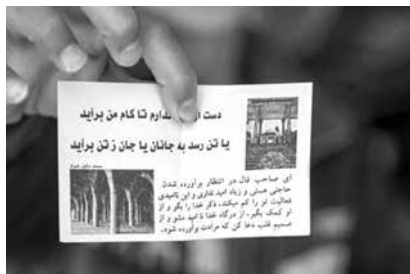 دست تا کام من برآید
یا تن رسد به جانان یا جان ز تن برآید
ای صاحب فال در انتظار برآورده شدن
حاجتی هستی و زیاد امید نداری و این ناامیدی
فعالیت تو را کم میکند، ذکر خدا را بگو و از
او کمک بگیر، از درگاه خدا نا امید مشو و از
صمیم قلب دعا کن که مرادت برآورده شود.